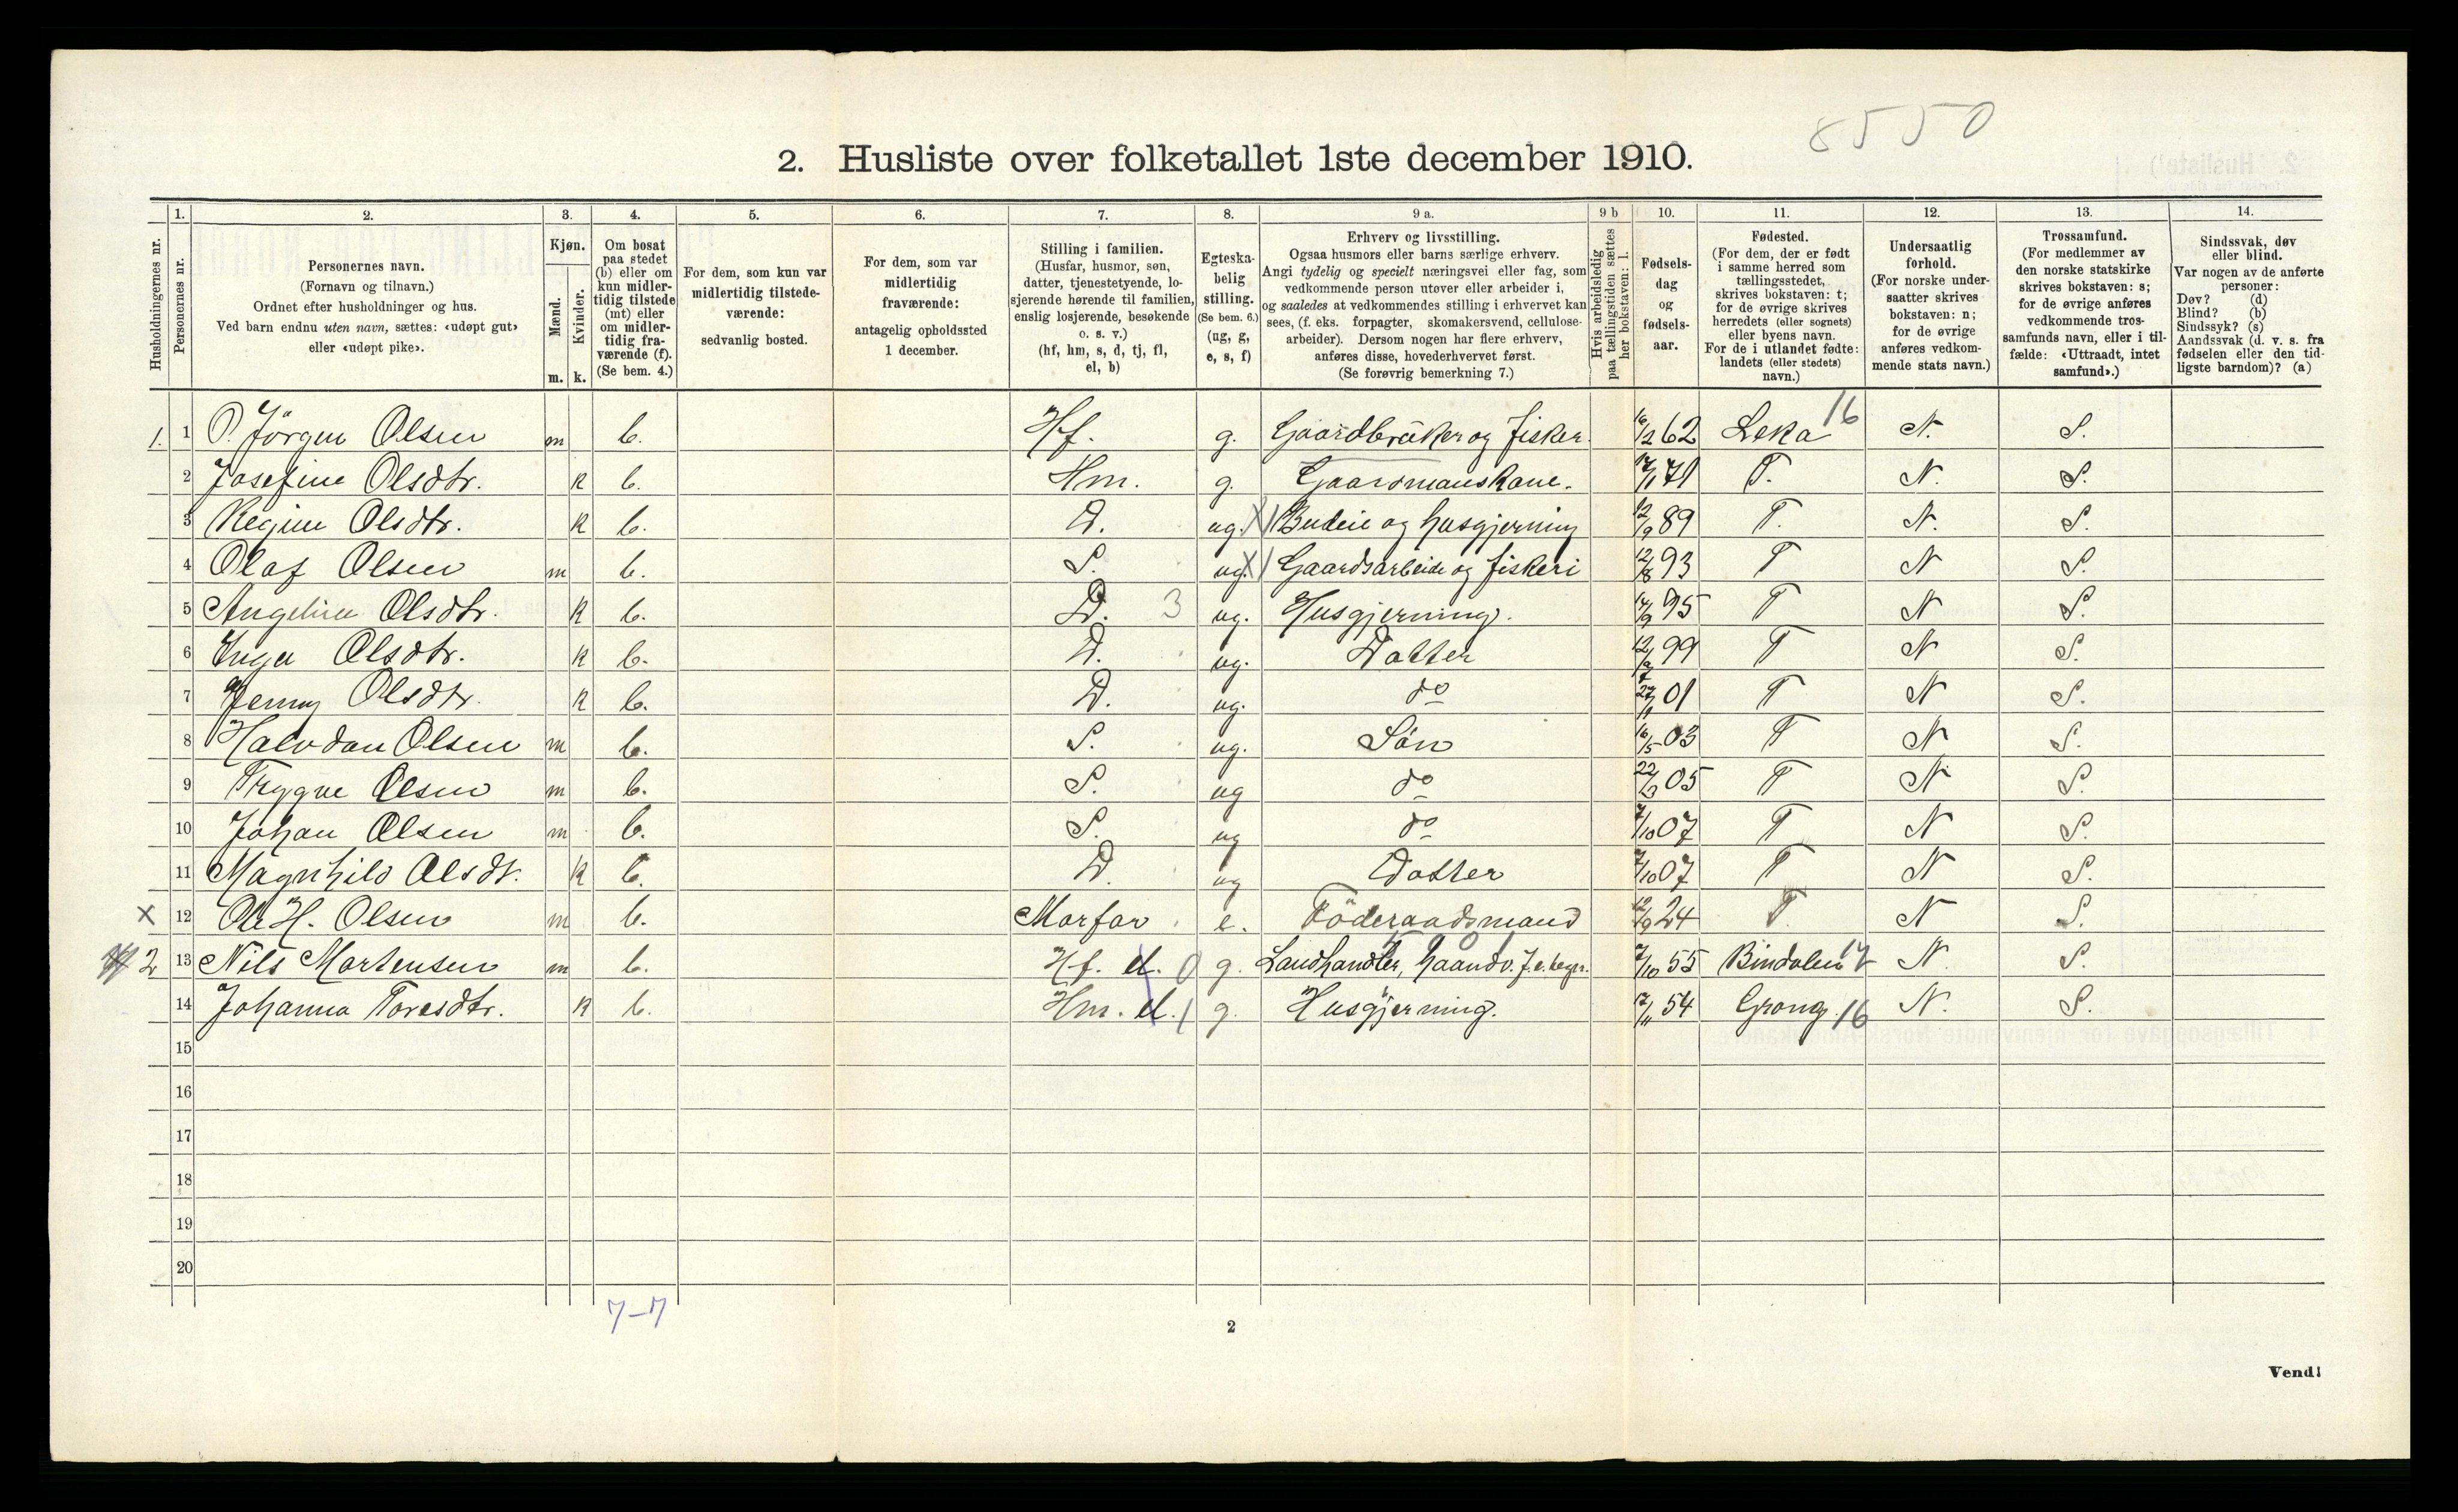 8550
2. Husliste over folketallet 1ste december 1910.
1. 2. 3. 4. 5. 6. 7. 8. 9 a. 9 b 10. 11. 12. 13. 14.
Husholdningernes nr.
Personernes nr.
Personernes navn.
(Fornavn og tilnavn.)
Ordnet efter husholdninger og hus.
Ved barn endnu uten navn, sættes: «udøpt gut»
eller «udøpt pike».
Kjøn.
Mænd.
Kvinder.
m. k.
Om bosat
paa stedet
(b) eller om
kun midler-
tidig tilstede
(mt) eller
om midler-
tidig fra-
værende (f).
(Se bem. 4.)
For dem, som kun var
midlertidig tilstede-
værende:
sedvanlig bosted.
For dem, som var
midlertidig
fraværende:
antagelig opholdssted
1 december.
Stilling i familien.
(Husfar, husmor, søn,
datter, tjenestetyende, lo-
sjerende hørende til familien,
enslig losjerende, besøkende
o. s. v.)
(hf, hm, s, d, tj, fl,
el, b)
Egteska-
belig
stilling.
(Se bem. 6.)
(ug, g,
e, s, f)
Erhverv og livsstilling.
Ogsaa husmors eller barns særlige erhverv.
Angi tydelig og specielt næringsvei eller fag, som
vedkommende person utøver eller arbeider i,
og saaledes at vedkommendes stilling i erhvervet kan
sees, (f. eks. forpagter, skomakersvend, cellulose-
arbeider). Dersom nogen har flere erhverv,
anføres disse, hovederhvervet først.
(Se forøvrig bemerkning 7.)
Hvis arbeidsledig
paa tællingstiden sættes
her bokstaven: l.
Fødsels-
dag
og
fødsels-
aar.
Fødested.
(For dem, der er født
i samme herred som
tællingsstedet,
skrives bokstaven: t;
for de øvrige skrives
herredets (eller sognets)
eller byens navn.
For de i utlandet fødte:
landets (eller stedets)
navn.)
Undersaatlig
forhold.
(For norske under-
saatter skrives
bokstaven: n;
for de øvrige
anføres vedkom-
mende stats navn.)
Trossamfund.
(For medlemmer av
den norske statskirke
skrives bokstaven: s;
for de øvrige anføres
vedkommende tros-
samfunds navn, eller i til-
fælde: «Uttraadt, intet
samfund».)
Sindssvak, døv
eller blind.
Var nogen av de anførte
personer:
Døv? (d)
Blind? (b)
Sindssyk? (s)
Aandssvak (d. v. s. fra
fødselen eller den tid-
ligste barndom)? (a)
1. 1 P. Jörgen Olsen m b. Hf. g. Gaardbrüker og fisker. 16/2 62 Leka 16 N. S.
2 Josefine Olsdtr. k b. Hm. g. Gaardmanskone. 71 T. N. S.
3 Regine Olsdtr. k b. D. ug. Budeie og husgjerning 12/9 89 T. N. S.
4 Olaf Olsen m b. S. ug. Gaardsarbeide og fiskeri 12/8 93 T N S.
5 Olsdtr. k b. D. 3 ug. Husgjerning. 95 T N S.
6 Inga Olsdtr. k b. D. ug. Datter 99 T N S.
7 Jenny Olsdtr. k b. D. ug. do 01 T N S.
8 Halvdan Olsen m b. S. ug. Sön 16/5 03 T N S.
9 Trygve Olsen m b. S. ug do 22/3 05 T N S.
10 Johan Olsen m b. S. ug do 7/10 07 T N S.
11 Magnhild Olsdt. k b. D. ug Datter 7/10 07 T N S.
x 12 Ole H. Olsen m b. Morfar e. Föderaadsmand 12/9 24 T. N S.
2 13 Nils Martensen m b. Hf. el. 0 g. Landhandler, 7/10 55 Bindalen 17 N. S.
14 Johanna Toresdtr. k b. Hm. el. 1 g. Husgjerning. 17/11 54 Grong. 16 N. S.
15
16
17
18
19
20
7-7
2
Vend!